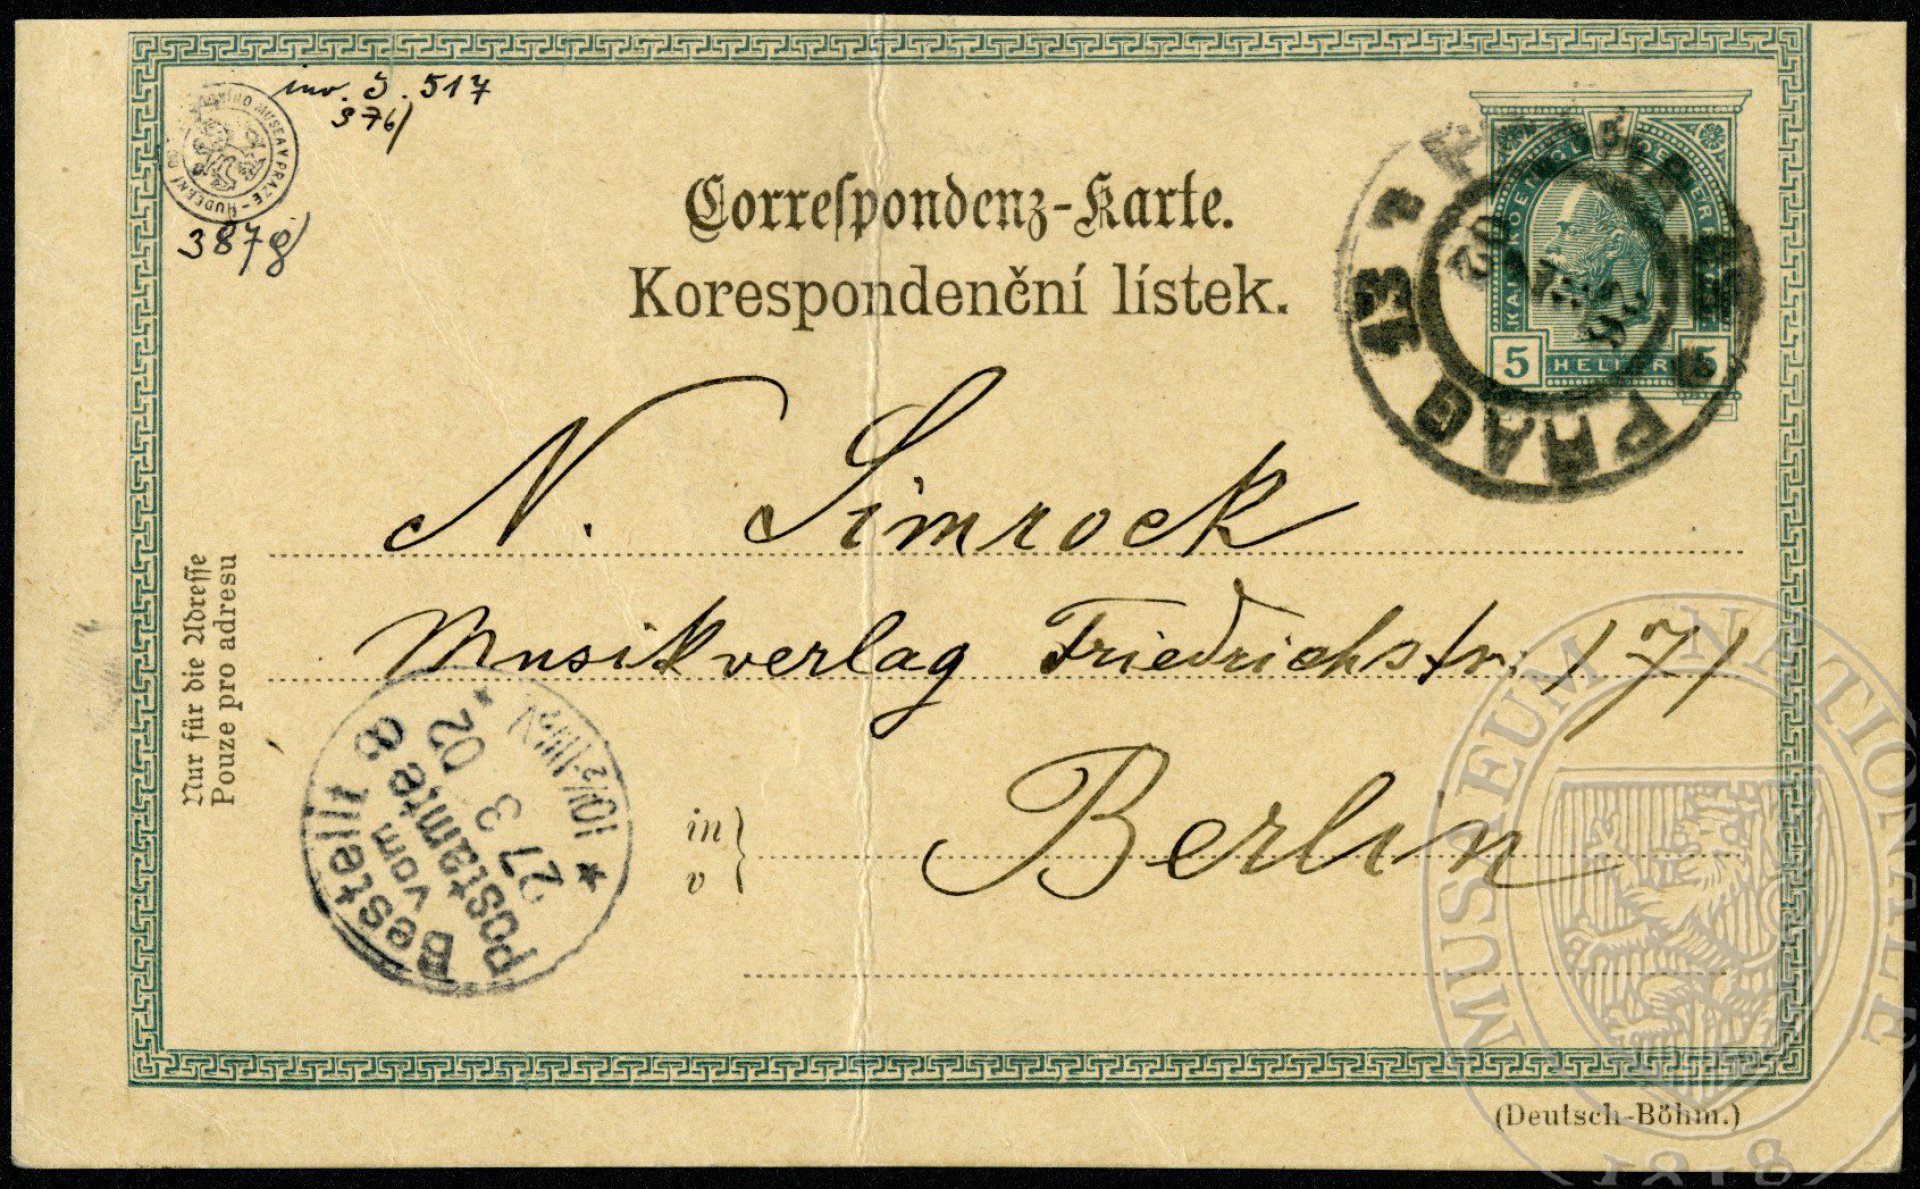 inv. č. 517
376/
HUDEBNÍ MUSEA V PRAZE
387g/
Correſpondenz-Karte.
Korespondenční lístek.
5 HELLER 5
PRAG 13
02
N. Simrock
Musikverlag Friedrichstr. 171
Nur für die Adreſſe
Pouze pro adresu
in
v
Berlin
Bestellt
vom
Postamte 8
27 3 02
(Deutsch-Böhm.)
MUSEUM NATIONALE
1818